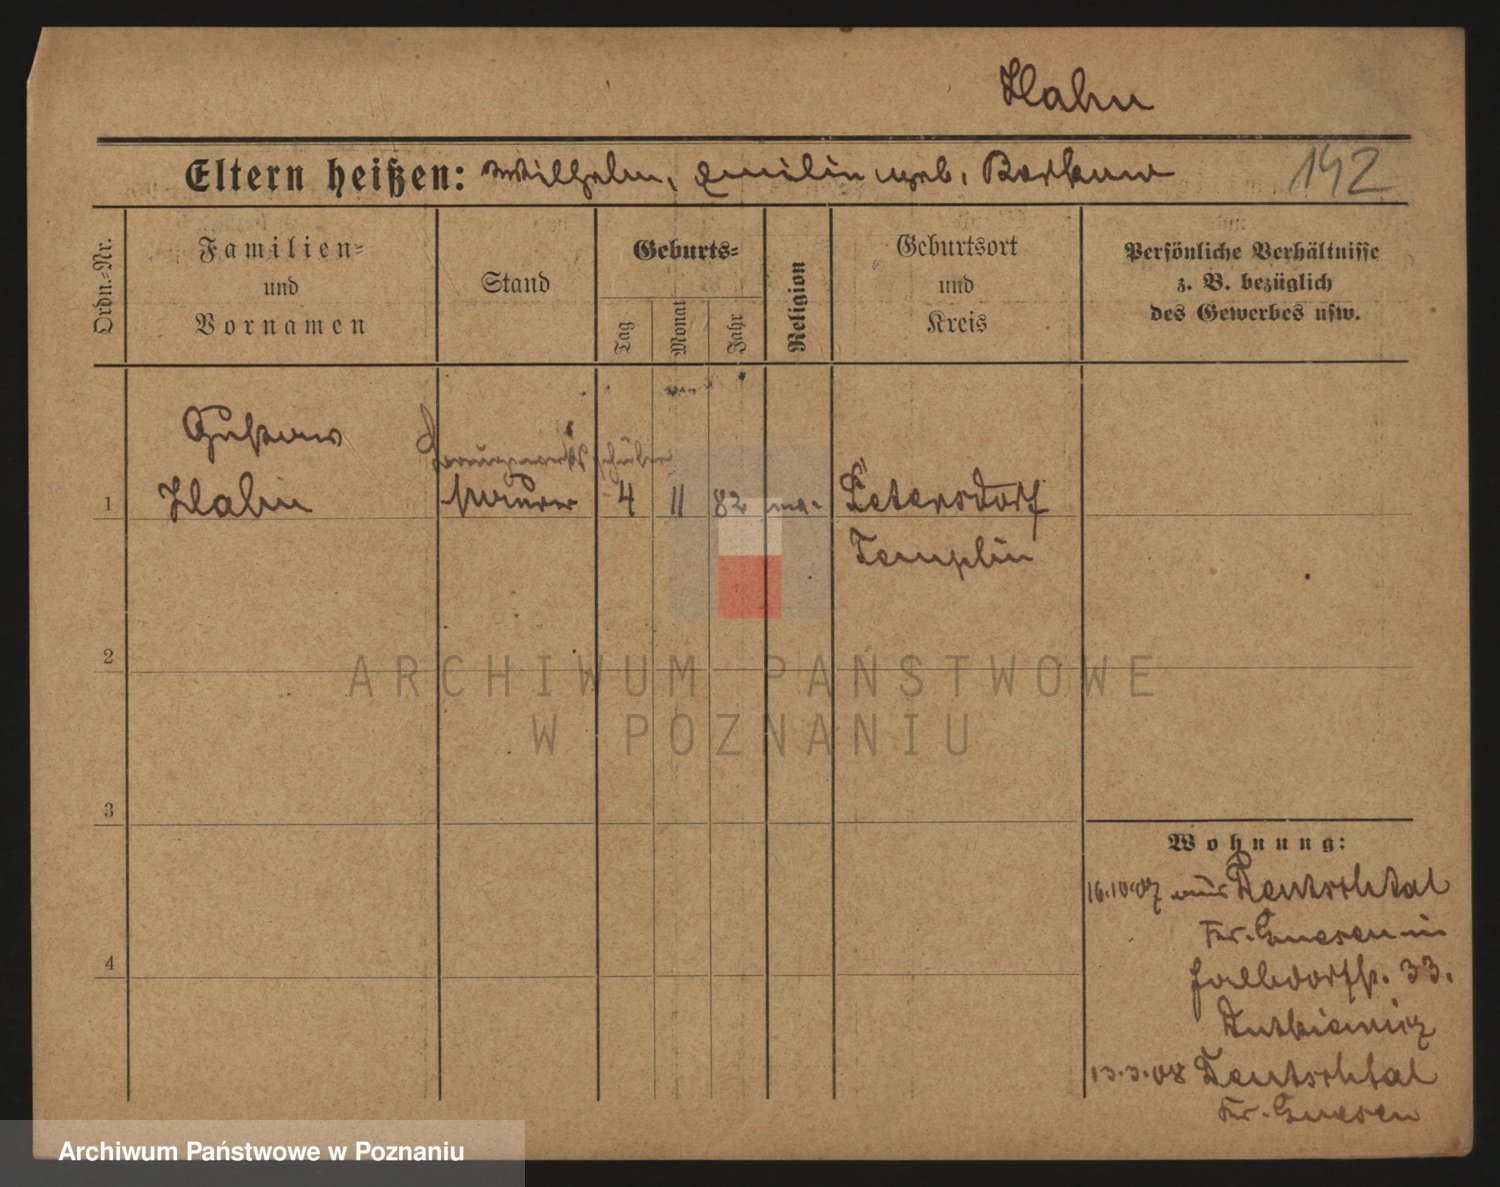 Hahn
Eltern heißen: Wilhelm, Emilie geb. Borkow
142
Ordn.-Nr.
Familien- und Vornamen
Stand
Geburts-
Tag
Monat
Jahr
Religion
Geburtsort und Kreis
Persönliche Verhältnisse z. B. bezüglich des Gewerbes usw.
Gustav
Baugewerksschüler
1 Hahn Maurer 4 11 82 Petersdorf
Templin
2
3
4
Wohnung:
16.10.07 aus Deutschtal
Kr. Gnesen in
Halbdorfstr. 33.
13.3.08 Deutschtal
Kr. Gnesen
ARCHIWUM PAŃSTWOWE
W POZNANIU
Archiwum Państwowe w Poznaniu